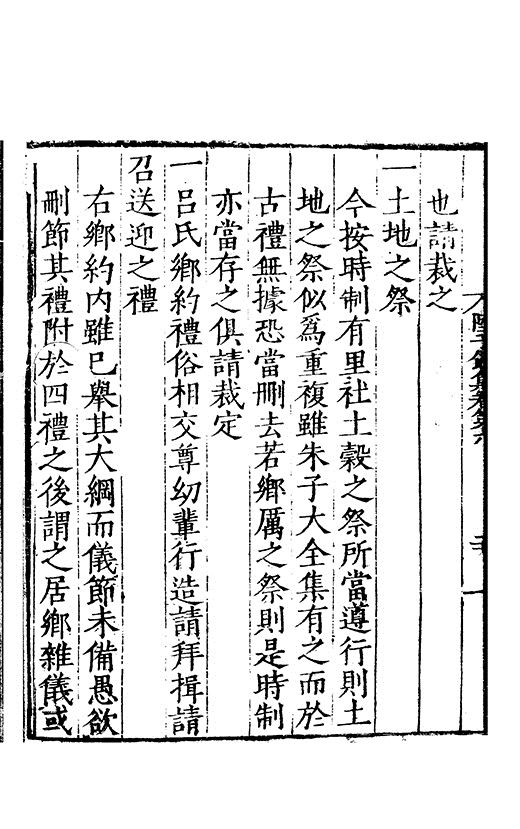 也請裁之
一土地之祭
今按時制有里社土穀之祭所當遵行則土
地之祭似爲重複雖朱子大全集有之而於
古禮無據恐當刪去若鄉厲之祭則是時制
亦當存之俱請裁定
一吕氏鄉約禮俗相交尊幼輩行造請拜揖請
召送迎之禮
右鄉約内雖已舉其大綱而儀節未備愚欲
刪節其禮附於四禮之後謂之居鄉雜儀或